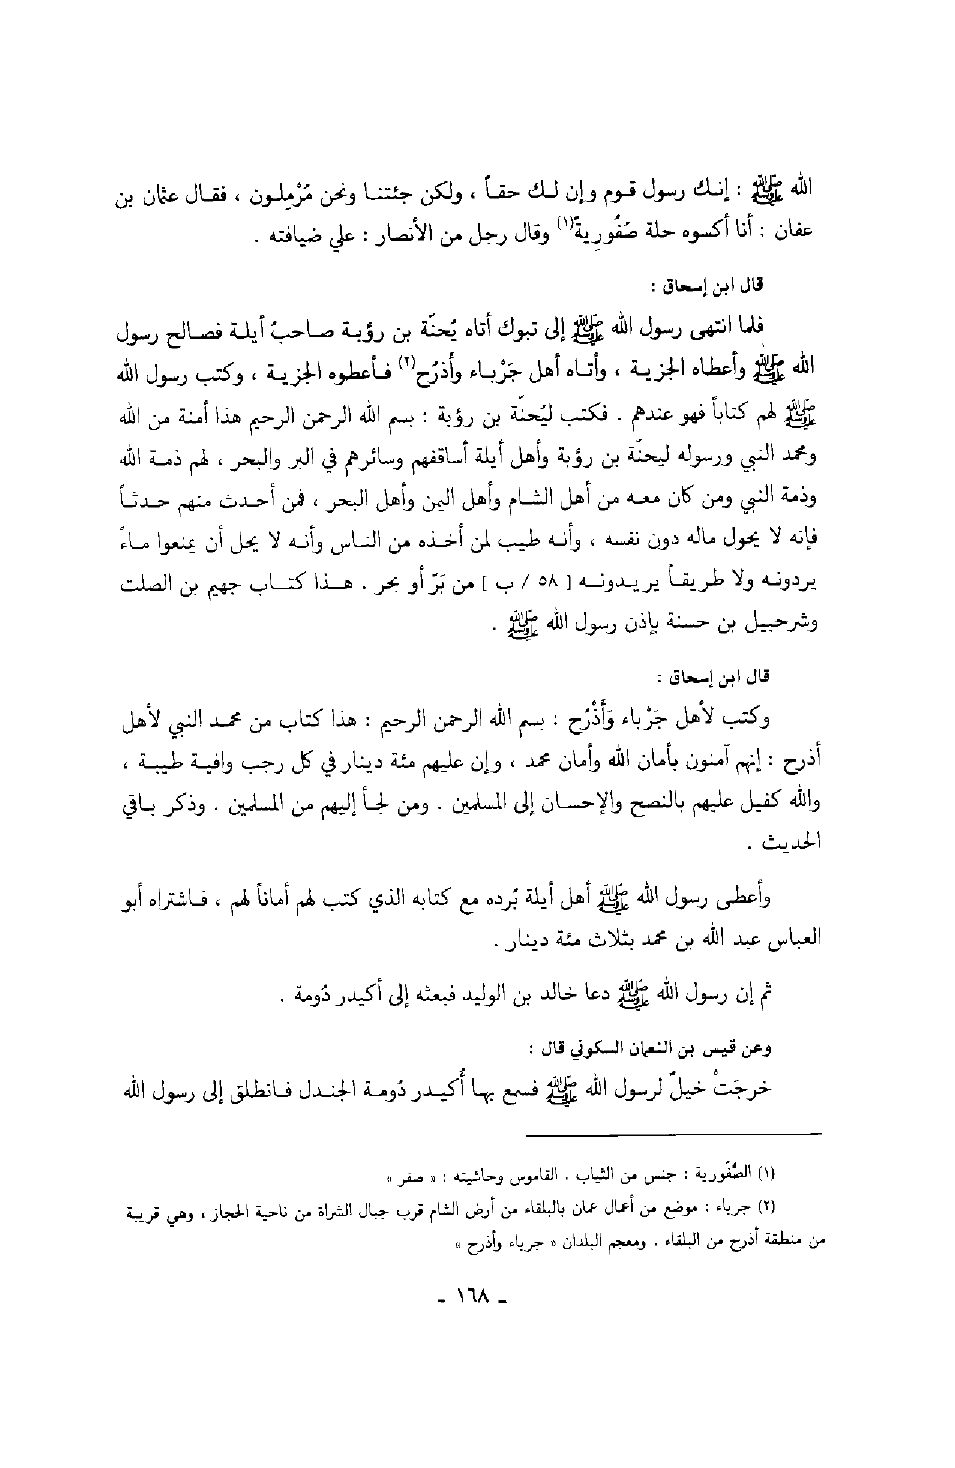 الله ﷺ : إنـك رسول قـوم وإن لـك حقـاً ، ولكن جئتنـا ونحن مُرْمِلـون ، فقـال عثمان بن
عفان : أنا أكسوه حلة صَفُورِيةً(١) وقال رجل من الأنصار : علي ضيافته .
قال ابن إسحاق :
فلما انتهى رسول الله ﷺ إلى تبوك أتاه يُحنّة بن رؤبـة صـاحبُ أيلـة فصـالح رسول
الله ﷺ وأعطاه الجزيـة ، وأتـاه أهل جَرْبـاء وأذرُح(٢) فـأعطوه الجزيـة ، وكتب رسول الله
ﷺ لهم كتاباً فهو عندهم . فكتب ليُحنّة بن رؤبة : بسم الله الرحمن الرحيم هذا أمنة من الله
ومحمد النبي ورسوله ليحنّة بن رؤبة وأهل أيلة أساقفهم وسائرهم في البر والبحر ، لهم ذمـة الله
وذمة النبي ومن كان معـه من أهل الشـام وأهل اليمن وأهل البحر ، فمن أحـدث منهم حدثـاً
فإنه لا يحول ماله دون نفسه ، وأنـه طيب لمن أخـذه من النـاس وأنـه لا يحل أن يمنعوا مـاءً
يردونـه ولا طريقـاً يريـدونـه [ ٥٨ / ب ] من بَرّ أو بحر . هـذا كتـاب جهيم بن الصلت
وشرحبيل بن حسنة بإذن رسول الله ﷺ .
قال ابن إسحاق :
وكتب لأهل جَرْباء وَأَذْرُح : بسم الله الرحمن الرحيم : هذا كتاب من محمـد النبي لأهل
أذرح : إنهم آمنون بأمان الله وأمان محمد ، وإن عليهم مئة دينار في كل رجب وافيـة طيبـة ،
والله كفيل عليهم بالنصح والإحسـان إلى المسلمين . ومن لجأ إليهم من المسلمين . وذكر بـاقي
الحديث .
وأعطى رسول الله ﷺ أهل أيلة بُرده مع كتابه الذي كتب لهم أماناً لهم ، فـاشتراه أبو
العباس عبد الله بن محمد بثلاث مئة دينار .
ثم إن رسول الله ﷺ دعا خالد بن الوليد فبعثه إلى أكيدر دُومة .
وعن قيس بن النعمان السكوني قال :
خرجَتْ خيلٌ لرسول الله ﷺ فسمع بهـا أُكيـدر دُومـة الجنـدل فـانطلق إلى رسول الله
(١) الصَّفُورية : جنس من الثياب . القاموس وحاشيته : « صفر »
(٢) جرباء : موضع من أعمال عمان بالبلقاء من أرض الشام قرب جبال الشراة من ناحية الحجاز ، وهي قريبـة
من منطقة أذرح من البلقاء . ومعجم البلدان « جرباء وأذرح »
- ١٦٨ -